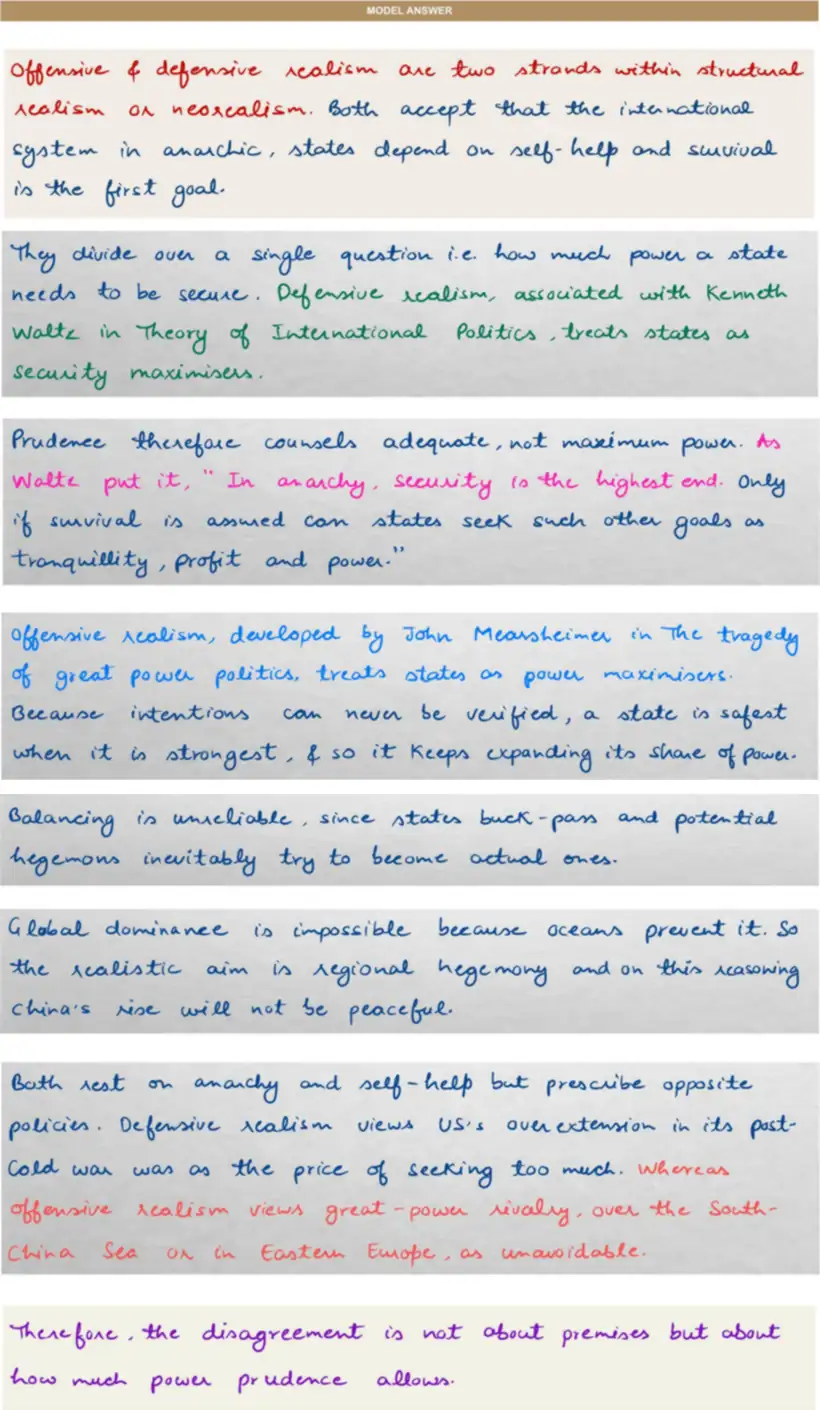 MODEL ANSWER
Offensive & defensive realism are two strands within structural
realism or neorealism. Both accept that the international
system in anarchic, states depend on self-help and survival
is the first goal.
They divide over a single question i.e. how much power a state
needs to be secure. Defensive realism, associated with Kenneth
Waltz in Theory of International Politics, treats states as
security maximisers.
Prudence therefore counsels adequate, not maximum power. As
Waltz put it, "In anarchy, security is the highest end. Only
if survival is assured can states seek such other goals as
tranquillity, profit and power."
Offensive realism, developed by John Mearsheimer in The tragedy
of great power politics, treats states as power maximisers.
Because intentions can never be verified, a state is safest
when it is strongest, & so it keeps expanding its share of power.
Balancing is unreliable, since states buck-pass and potential
hegemons inevitably try to become actual ones.
Global dominance is impossible because oceans prevent it. So
the realistic aim is regional hegemony and on this reasoning
China's rise will not be peaceful.
Both rest on anarchy and self-help but prescribe opposite
policies. Defensive realism views US's overextension in its post-
Cold war was as the price of seeking too much. Whereas
offensive realism views great-power rivalry, over the South-
China Sea or in Eastern Europe, as unavoidable.
Therefore, the disagreement is not about premises but about
how much power prudence allows.